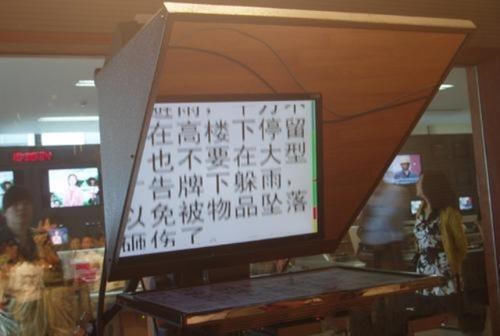 避雨，千万不
在高楼下停留
也不要在大型
告牌下躲雨，
以免被物品坠落
砸伤了